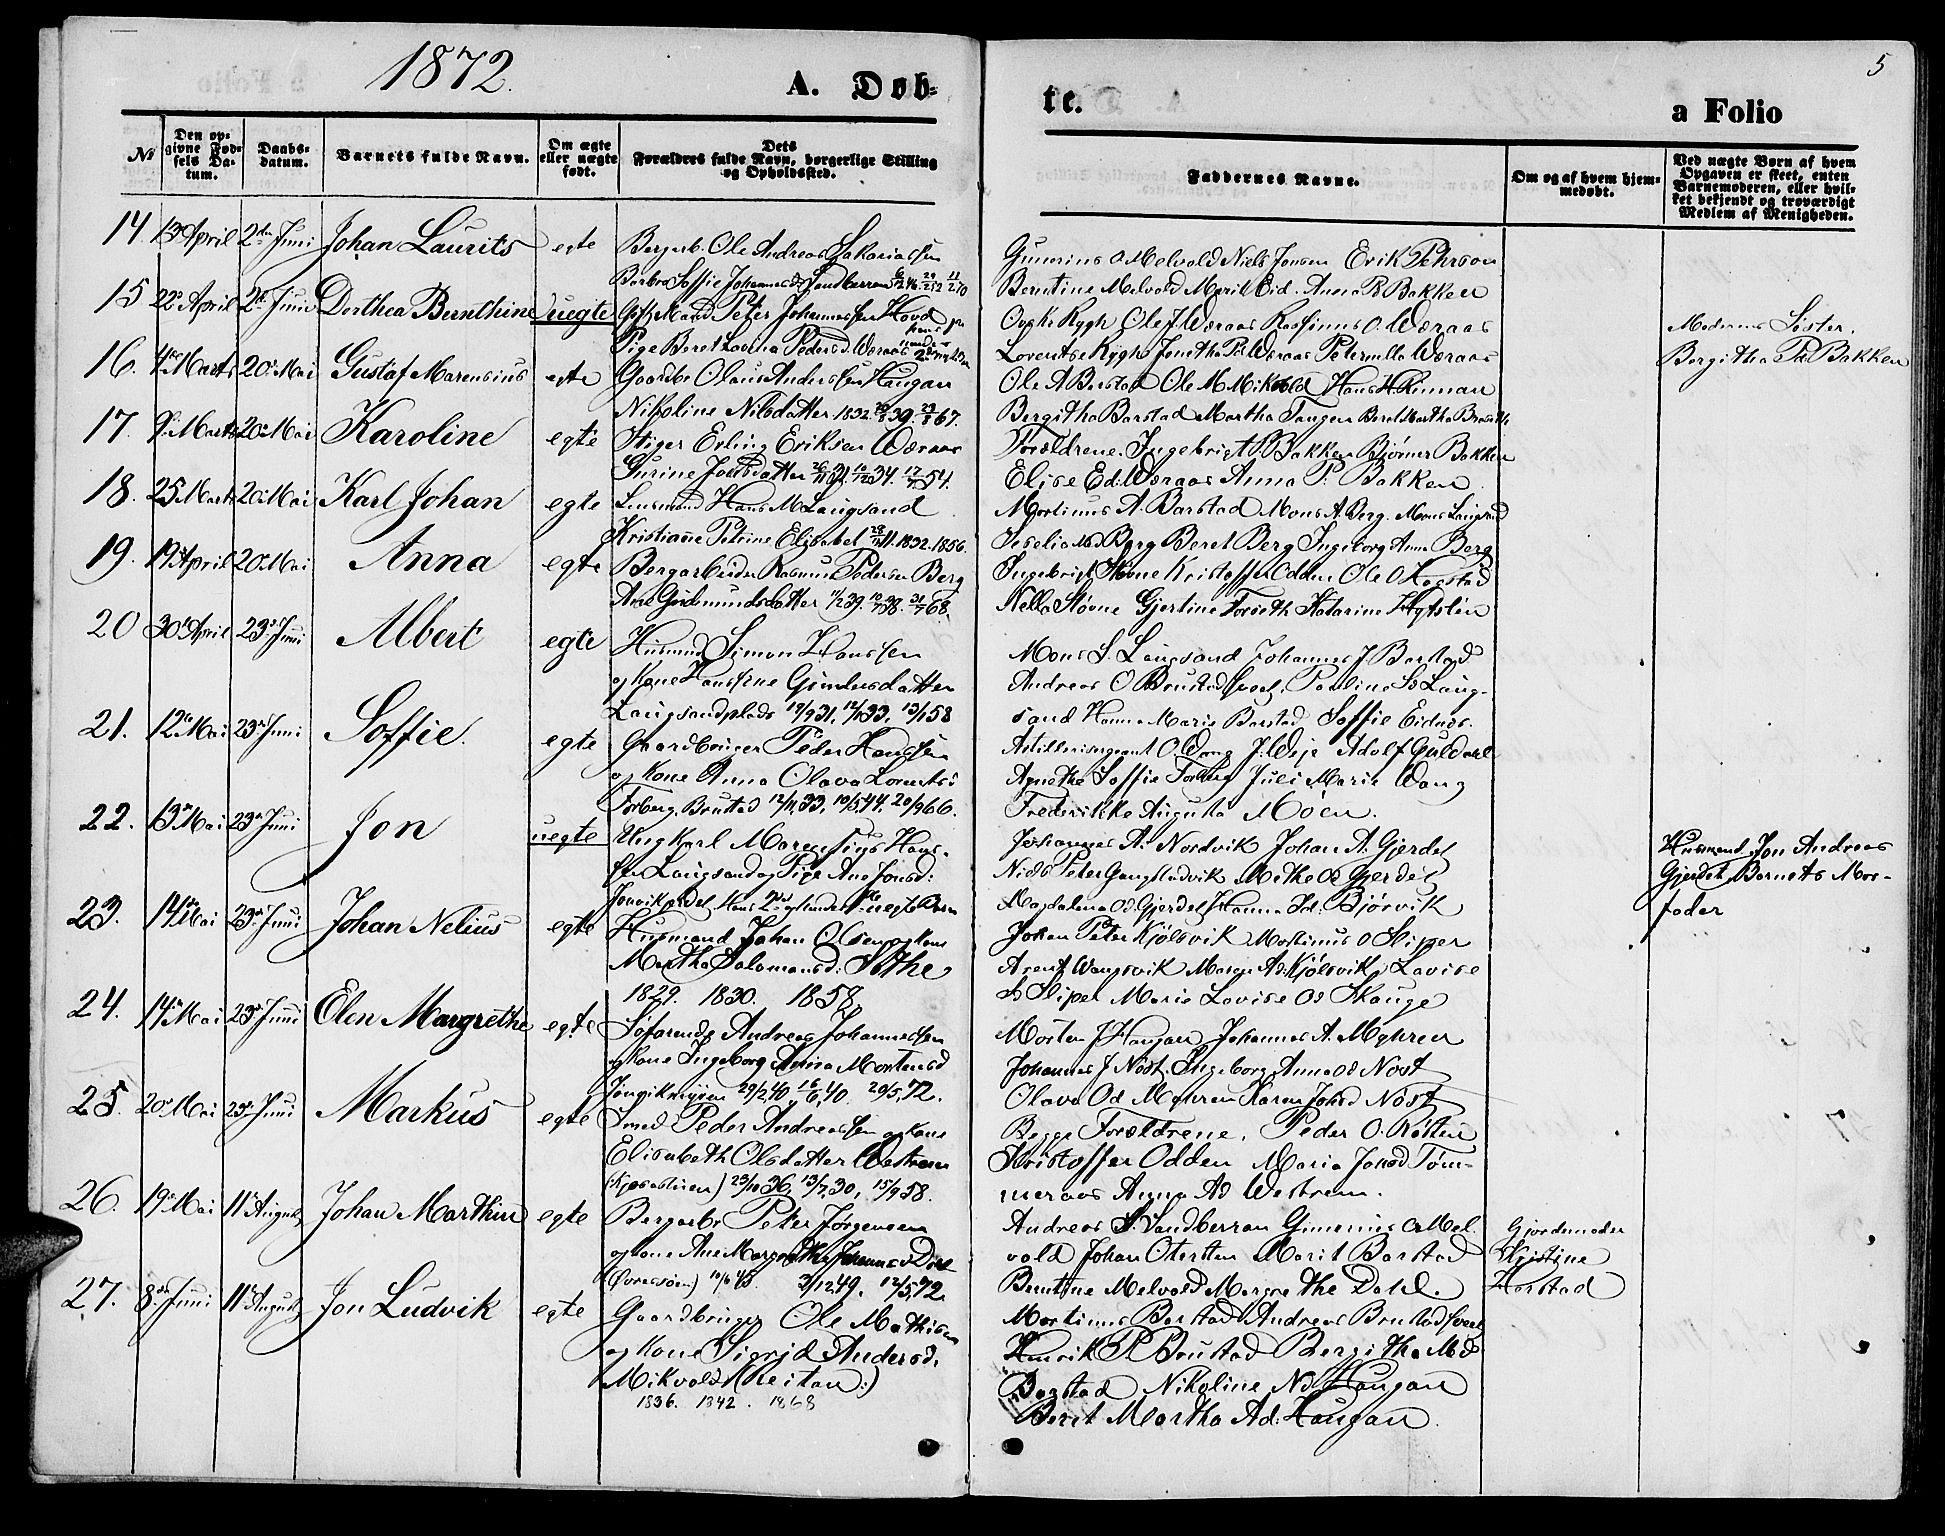 1872.
A. Døb-
te.
a Folio
5
No
Den opgivne Fødsels Datum.
Daabsdatum.
Barnets fulde Navn.
Om ægte eller uægte født.
Dets Forældres fulde Navn, borgerlige Stilling og Opholdssted.
Faddernes Navne.
Om og af hvem hjemmedøbt.
Ved uægte Børn af hvem Opgaven er skeet, enten Barnemoderen, eller hvilket bekjendt og troværdigt Medlem af Menigheden.
14. 13 April 2den Juni Johan Laurits egte Bergarb. Ole Andreas Sakariassen
Gunerius O Melvold Niels Jonsen Erik Pehrson
Berntine Melvold Marit Eid. Anna P. Bakken
15 22 April 2d Juni Dorthea Bernthine uegte Gift Mand Peter Johannessen Hovd
Pige Beret Lovina Pedersd. Væraas
Ole J Væraas Rasinus O. Væraas
Moderens Søster.
Bergitha Bakken
16. 4de Marts 20de Mai Gustaf Marensius egte Gaardbr Olaus Anderssen Haugan
Nikoline Nilsdatter 1832. 39. 67.
Ole A Barstad Ole M Mikvold Hans H Hinnan
Bergitha Barstad Martha Tangen
17. 9de Marts 20de Mai Karoline egte Stiger Erling Eriksen Væraas
Gurine Jonsdatter 34. 54.
Forældrene. Ingebrigt P. Bakken Bjørner Bakken
Elise Ed. Væraas Anna P. Bakken
18. 25 Marts 20 Mai Karl Johan egte Lensmand Hans M Langsand
Kristiane Petrine Elisabet 1832. 1856.
Mortinus A. Barstad Mons A. Berg. Mons Langsand
Berg Beret Berg Ingeborg Anna Berg
19. 19 April 20de Mai Anna egte Bergarbeider Rasmus Pedersen Berg
Ane Gudmundsdatter 11/2 39. 38. 68.
Ingebrigt Støvne Kristoffer Odden Ole O Hogstad
Nella Støvne Gjertine Forseth Katarine
20 30te April 23de Juni Albert egte Husmand Simon Hanssen
og Kone Hansine Gundersdatter
Langsandplads 17/9 31, 12/1 33, 13/1 58
Mons S. Langsand Johannes J Barstad
Andreas O Brustad Pauline Sd Lang-
sand Hanna Marie Barstad Soffie Eidnes.
21. 12te Mai 23de Juni Soffie. egte Gaardbruger Peder Hanssen
og Kone Anna Olava Lorntsd
Forberg, Brustad 12/11 33, 10/5 44. 20/9 66.
Artillerisergeant O. Wang J. Weje Adolf Guldahl
Agnethe Soffie Juli Marie Wang
Frederikke Augusta Moen.
22. 13de Mai 23de Juni Jon uegte Ungkarl Marensius Hans-
sen Langsand og Pige Ane Jonsd:
Johannes A. Nordvik Johan A. Gjerdet
Niels Peter Mette Od Gjerdet
Magdalena Od. Gjerdet Hanna Bjørvik
Husmand Jon Andreas
Gjerdet Barnets Mor-
foder
23. 14de Mai 23de Juni Johan Nelius egte Husmand Johan Olsen og Kone
Martha Salomonsd:
1829. 1830. 1858
Johan Peter Kjølsvik Mortinus O Sliper
Arent Vangsvik Maren Ad. Kjølsvik Lovise
Sliper Marie Lovise Od Skauge
24. 14de Mai 23de Juni Elen Margrethe egte Søfarende Andreas Johannessen
og Kone Ingeborg Anna Mortensd
29/2 40, 15/6 40. 29/5 72.
Morten J Haugan Johannes A. Myhren
Johannes J Nøst. Ingeborg Anna Od Nøst
Olava Od Myhren Karen Johsd Nøst
25. 20de Mai 23de Juni Markus egte Smed Peder Andreassen og Kone
Elisabeth Olsdatter Westrem
23/10 36, 13/7 30, 15/9 58.
Begge Forældrene. Peder O. Røsten
Kristoffer Odden Maria Johsd Tøm-
meraas Anna Ad Westrem.
26. 19de Mai 11te August Johan Marthin egte Bergarbr Peter Jørgensen
og Kone Ane Margrethe
3/12 49, 12/5 72.
Andreas S. Sandberran Gunerius O Mel-
vold Johan Otersten Marit Barstad
Berntine Melvold Margrethe Dahl.
Gjordemoder
Kjistine
Harstad
27. 8de Juni 11te August Jon Ludvik egte Gaardbruger Ole Mathisen
og Kone Sigrid Andersd.
Mikvold (Reitan:)
1836. 1842. 1868
Mortinus Barstad Andreas Brustad
Henrik P. Brustad Bergitha Md
Barstad Nikoline Nd Haugan
Beret Martha Ad: Haugan.